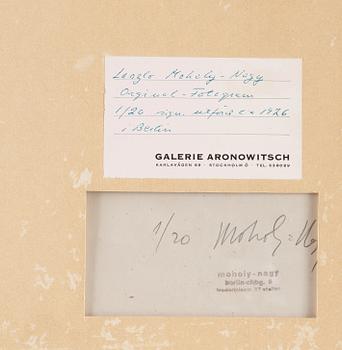 Laszlo Moholy-Nagy
Orginal-Fotogram
1/20 sign. utförd ca 1926
i Berlin
GALERIE ARONOWITSCH
KARLAVÄGEN · STOCKHOLM Ö · TEL.
1/20 Moholy=Nag
moholy-nagy
berlin-chbg. 9